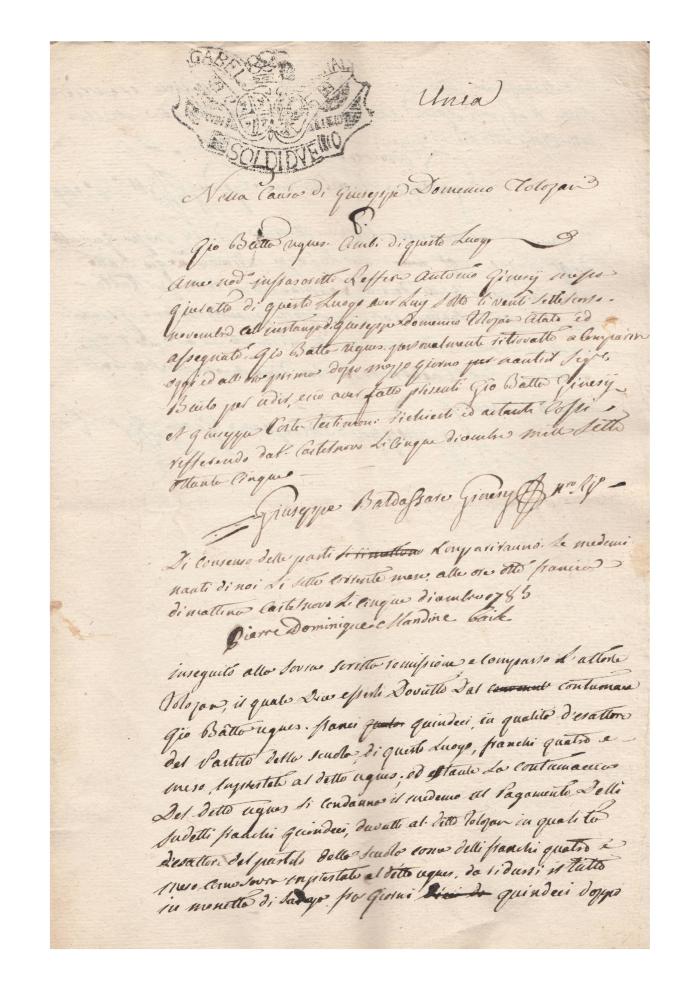 GABEL
SOLDI DVE
Unia
Nella Causa di Giuseppe Domenico Tolozan
Gio Batta Agnes Ambi di questo Luogo
A me nod.o infrascritto Reffere Antonio Ginesy messo
giurato di questo Luogo aver Luy sotto li venti sette scorso
novembre ad instanza di Giuseppe Domenico Tolozan citato ed
assegnato Gio Batta Agnes personalmente ritrovatto a Comparire
oggi ed alle ore prime dopo mezzo giorno nanti il Sig.r
Bailo per udir, e cio aver fatto presenti Gio Batta Ginesy
et Giuseppe Coste testimoni richiesti ed astanti Cossi
refferendo dat. Castelnovo Li Cinque dicembre mille Sette
ottanta Cinque
Giuseppe Baldassare Ginesy
Di Consenso delle parti Compariranno Le medemi
nanti di noi Li sette corrente mese alle ore otto francia
di mattina Castelnovo Li Cinque dicembre 1785
Pierre Dominique Blandine baile
inseguito alla sovra scritta remissione e comparso L'attore
Tolozan, il quale Dice essersi Dovutto Dal contumace
Gio Batta Agnes franci quindeci, in qualità d'esattore
del Partito della scuola, di questo Luogo, franchi quatro e
meso, imprestate al detto Agnes, ed stante La contumaccia
Del detto Agnes si condanna il medemo al Pagamento Delli
sudetti franchi quindeci, dovutti al detto Tolozan in qualità
d'esattore del partito della scuola come delli franchi quatro e
meso come sovra imprestate al detto Agnes, da ridursi il tutto
in monetta di per Giorni quindeci doppo